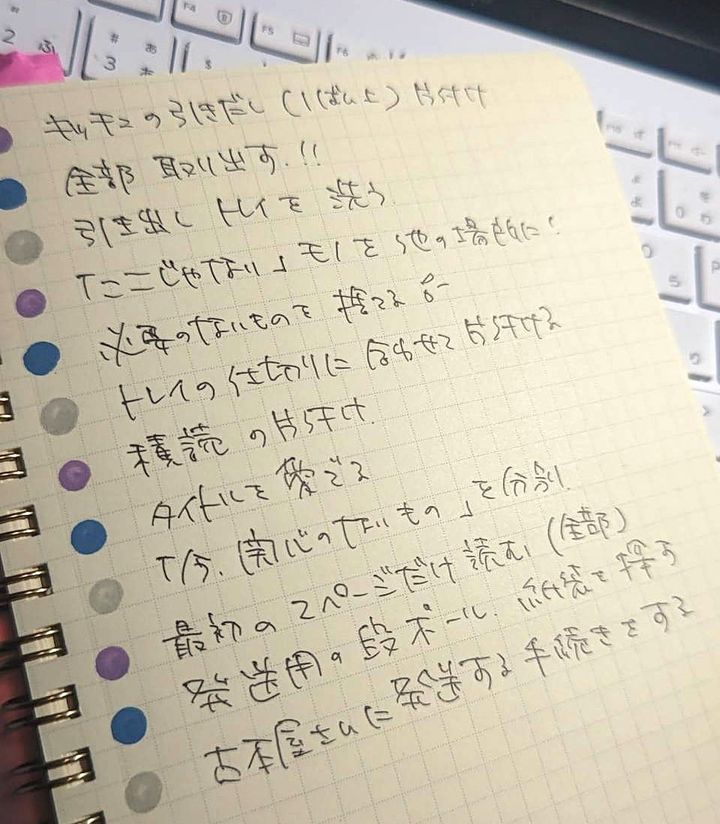 キッチンの引きだし（1ばん上）片付け
全部 取り出す.!!
引き出し トレイを 洗う.
「ここじゃない」モノを 他の場所に!
必要のないものを 捨てる
トレイの仕切りに 合わせて 片付ける
積読 の片付け.
タイトルを 愛でる
「今、関心のないもの」を分別.
最初の 2ページだけ 読む.（全部）
発送用の 段ボール. 紙袋を 探す
古本屋さんに 発送する 手続きをする
F4
F5
F6
2 ふ
# あ
3 ぁ